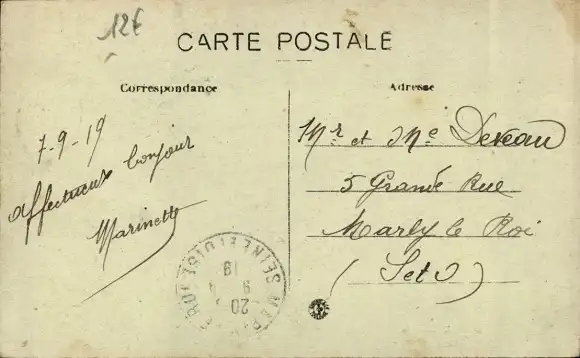 12€
CARTE POSTALE
Correspondance
Adresse
7-9-19
affectueux bonjour
Marinette
Mr et Me Deveau
5 Grande Rue
Marly le Roi
(S et O)
SEINE ET OISE
20
9
19